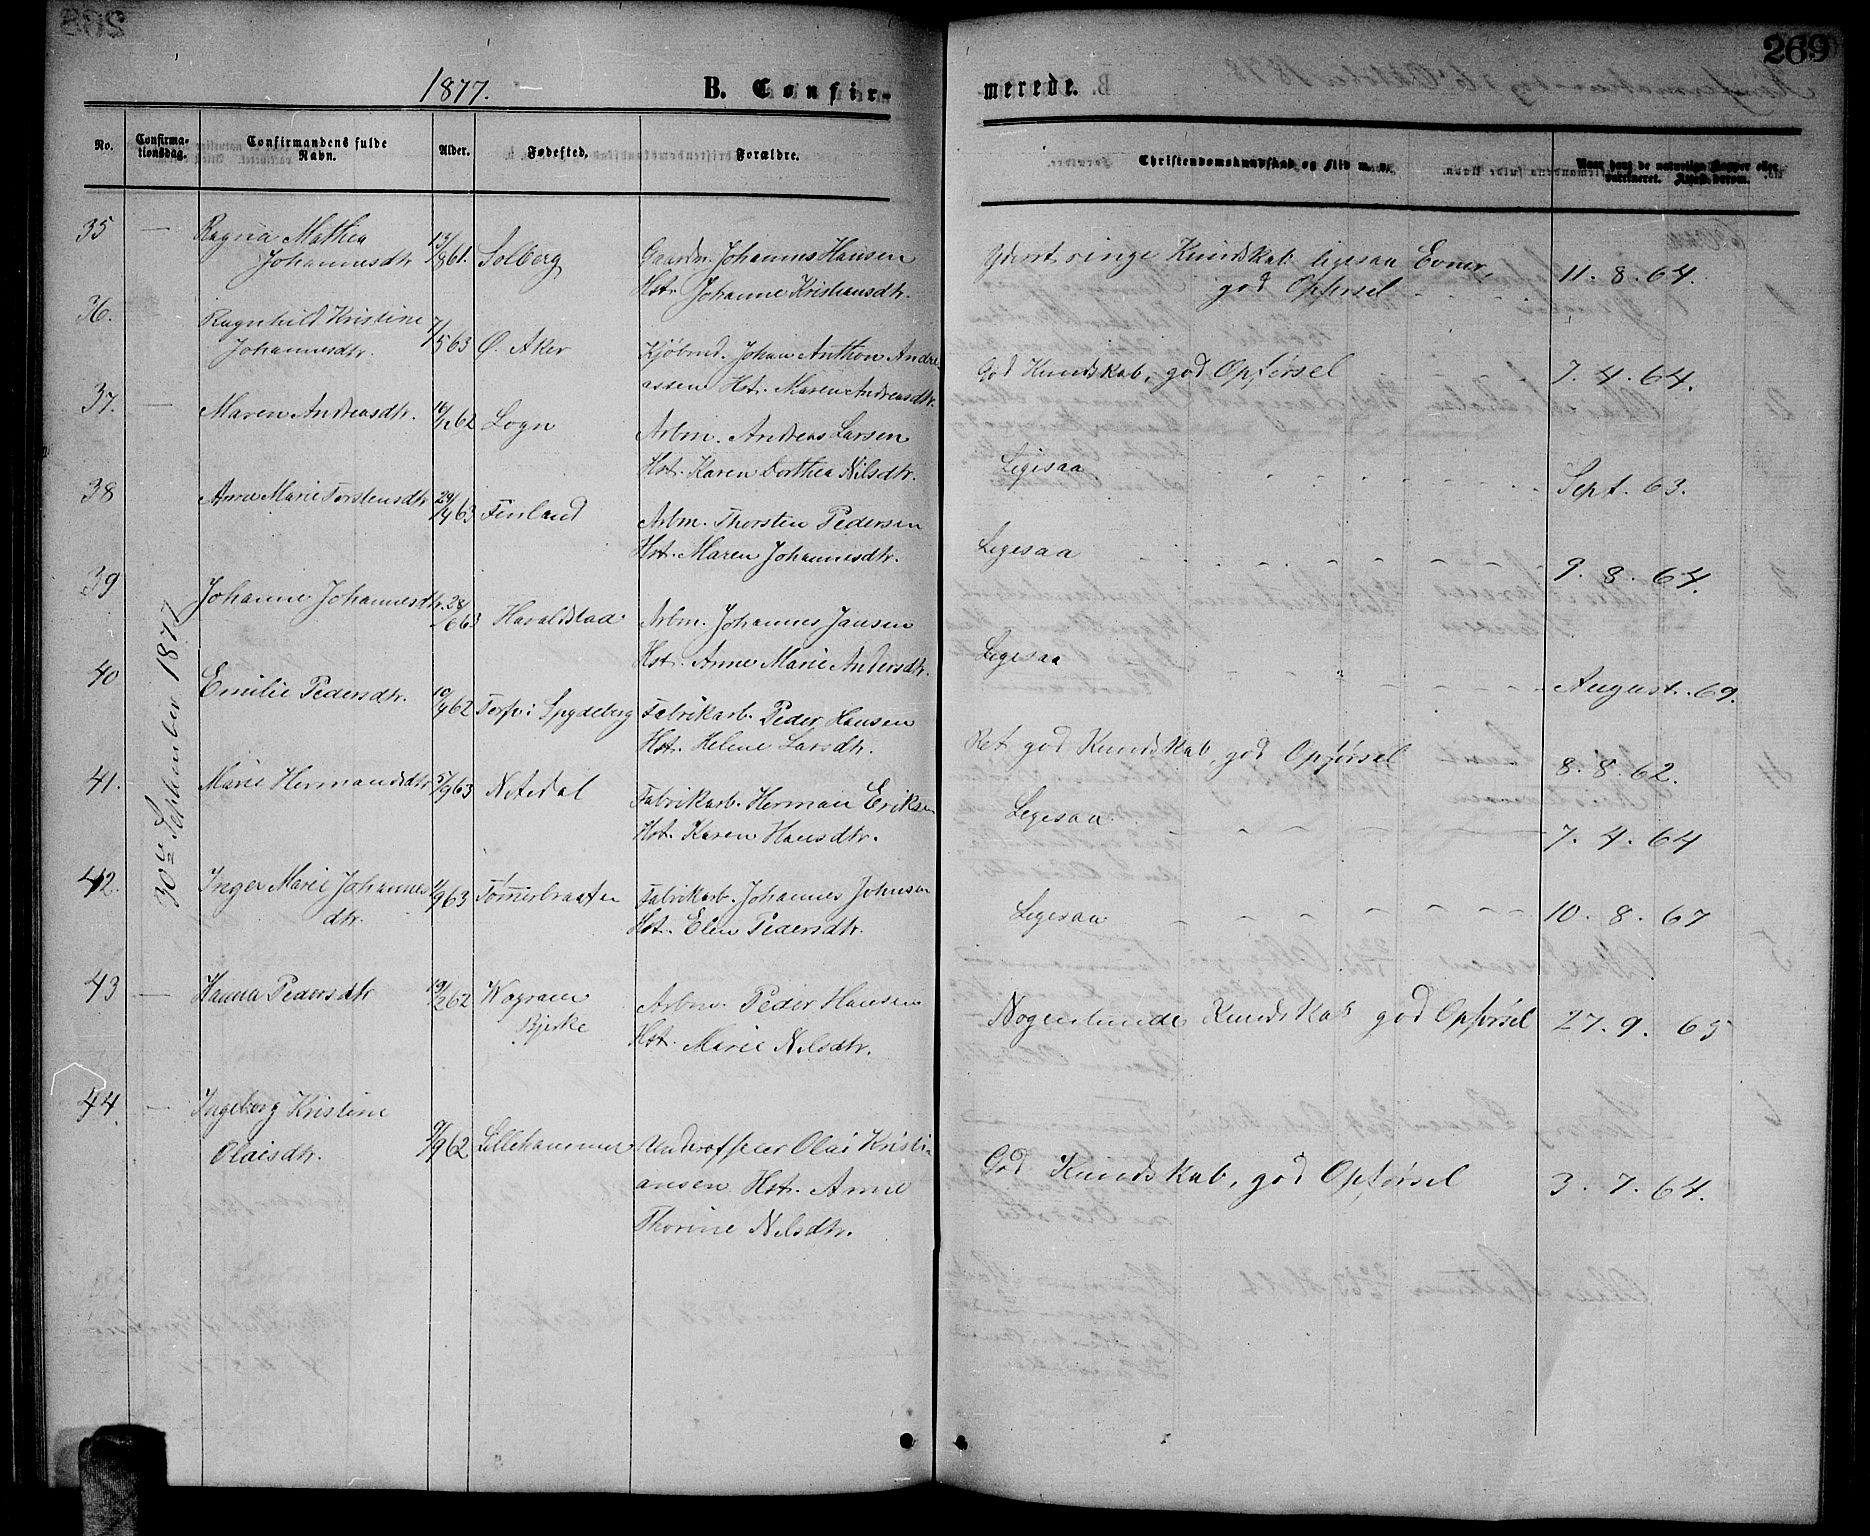 269
1877.
B. Confir-
merede.
No.
Confirma-
tionsdag.
Confirmandens fulde
Navn.
Alder.
Fødested.
Forældre.
Christendomskundskab og Flid m. v.
Naar havt de naturlige Kopper eller
vaccineret.
30te September 1877
35 — Ragna Mathea
Johannesdtr 13/8 61. Solberg
Gaardm. Johannes Hansen
Hst. Johanne Kristiansdtr.
Yderst ringe Kundskab ligesaa Evner,
god Opførsel 11. 8. 64.
36. Ragnhild Kristine
Johannesdtr. 7/5 63 Ø. Aker
Kjøbmd. Johan Anthon Andre-
assen Hst. Maren Andreasdtr.
God Kundskab, god Opførsel 7. 4. 64.
37. — Maren Andreasdtr. 62 Sogn
Arbm. Andreas Larsen
Hst. Karen Dorthea Nilsdtr.
Ligesaa Sept. 63.
38 Anne Marie Torstensdtr 29/4 63 Finland
Arbm. Thorsten Pedersen
Hst. Maren Johannesdtr.
Ligesaa 9. 8. 64.
39 Johanne Johannesdtr. 28/6 63 Haraldstad
Arbm. Johannes Jansen
Hst. Anne Marie Andersdtr.
Ligesaa August. 69.
40 Emilie Pedersdtr. 10/4 62 Torp i Spydeberg
Fabrikarb. Peder Hansen
Hst. Helene Larsdtr.
Ret god Kundskab, god Opførsel 8. 8. 62.
41. Marie Hermandsdtr 5/9 63 Nitedal
Fabrikarb. Herman Eriksen
Hst. Karen Hansdtr.
Ligesaa 7. 4. 64
42. Inger Marie Johannes
dtr. 1/9 63 Tømerbraaten
Fabrikarb. Johannes Johnsen
Hst. Elen Pedersdtr.
Ligesaa 10. 8. 67
43 — Hanna Pedersdtr 19/2 62 Wogram
Bjerke
Arbm. Peder Hansen
Hst. Marie Nilsdtr.
Nogenlunde Kundskab god Opførsel 27. 9. 65
44. — Ingeborg Kristine
Olaisdtr. 9/9 62 Lillehammer
Underofficer Olai Kristi-
ansen Hst. Anne
Thorine Nilsdtr.
God Kundskab, god Opførsel 3. 7. 64.